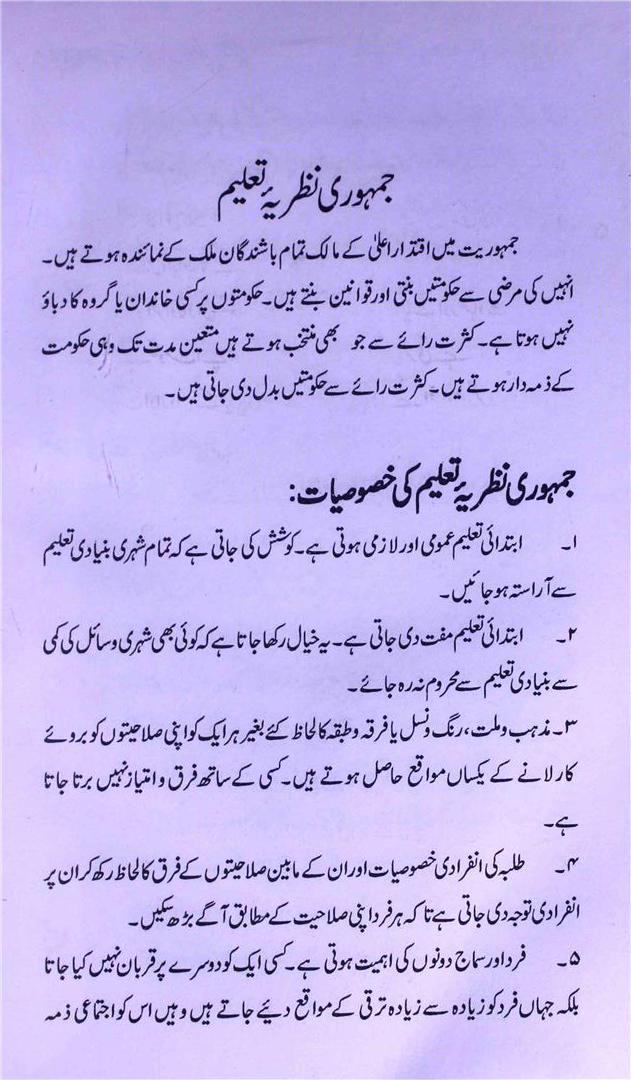 جمہوری نظریۂ تعلیم
جمہوریت میں اقتدار اعلیٰ کے مالک تمام باشندگان ملک کے نمائندہ ہوتے ہیں۔
انہیں کی مرضی سے حکومتیں بنتی اور قوانین بنتے ہیں۔ حکومتوں پر کسی خاندان یا گروہ کا دباؤ
نہیں ہوتا ہے۔ کثرت رائے سے جو بھی منتخب ہوتے ہیں متعین مدت تک وہی حکومت
کے ذمہ دار ہوتے ہیں۔ کثرت رائے سے حکومتیں بدل دی جاتی ہیں۔
جمہوری نظریۂ تعلیم کی خصوصیات:
۱۔ ابتدائی تعلیم عمومی اور لازمی ہوتی ہے۔ کوشش کی جاتی ہے کہ تمام شہری بنیادی تعلیم
سے آراستہ ہو جائیں۔
۲۔ ابتدائی تعلیم مفت دی جاتی ہے۔ یہ خیال رکھا جاتا ہے کہ کوئی بھی شہری وسائل کی کمی
سے بنیادی تعلیم سے محروم نہ رہ جائے۔
۳۔ مذہب و ملت، رنگ و نسل یا فرقہ و طبقہ کا لحاظ کئے بغیر ہر ایک کو اپنی صلاحیتوں کو بروئے
کار لانے کے یکساں مواقع حاصل ہوتے ہیں۔ کسی کے ساتھ فرق و امتیاز نہیں برتا جاتا
ہے۔
۴۔ طلبہ کی انفرادی خصوصیات اور ان کے مابین صلاحیتوں کے فرق کا لحاظ رکھ کر ان پر
انفرادی توجہ دی جاتی ہے تا کہ ہر فرد اپنی صلاحیت کے مطابق آگے بڑھ سکیں۔
۵۔ فرد اور سماج دونوں کی اہمیت ہوتی ہے۔ کسی ایک کو دوسرے پر قربان نہیں کیا جاتا
بلکہ جہاں فرد کو زیادہ سے زیادہ ترقی کے مواقع دیئے جاتے ہیں وہیں اس کو اجتماعی ذمہ